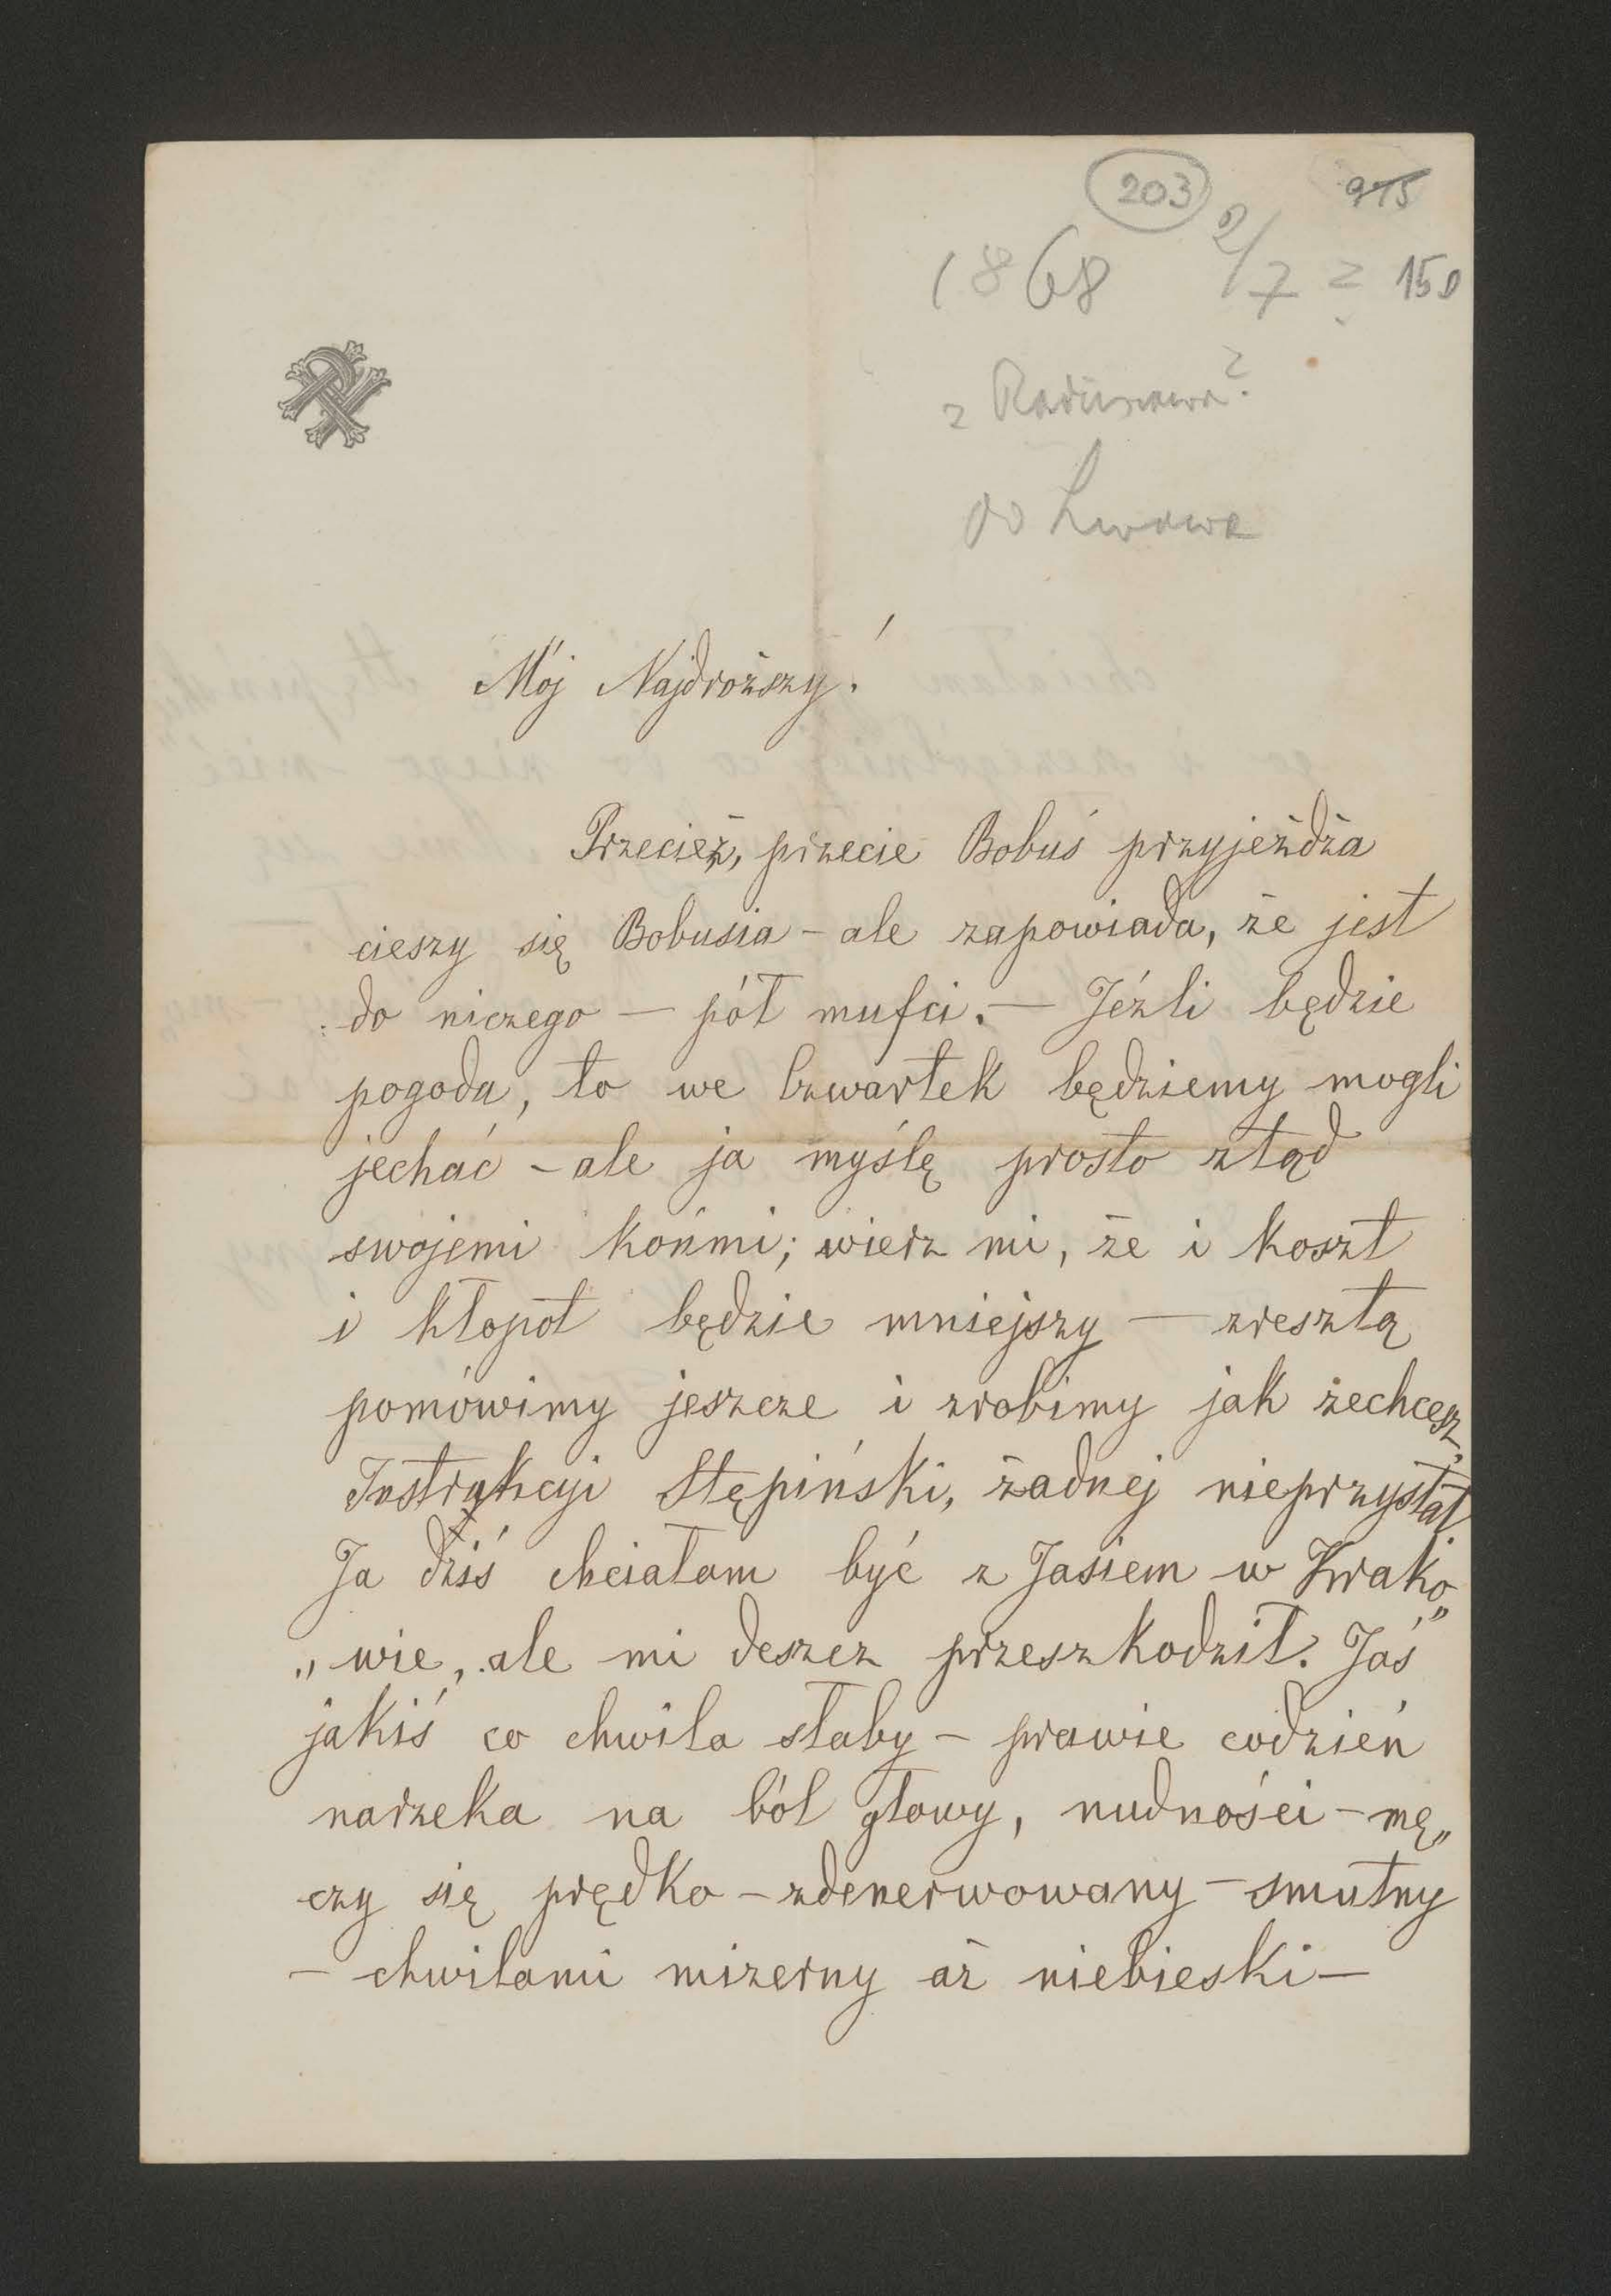 203
975
1868 2/7 ? 150
z Radziszowa?
do Lwowa
Mój Najdroższy!
Przecież, przecie Bobuś przyjeżdża
cieszy się Bobusia – ale zapowiada, że jest
do niczego — pół mufci. — Jéźli będzie
pogoda, to we Czwartek będziemy mogli
jechać – ale ja myślę prosto ztąd
swojemi końmi; wierz mi, że i koszt
i kłopot będzie mniejszy — zresztą
pomówimy jeszcze i zrobimy jak zechcesz.
Instrukcyi Stępiński, żadnej nieprzysłał
Ja dziś chciałam być z Jasiem w Krako„
„wie, ale mi deszcz przeszkodził. Jaś
jakiś co chwila słaby – prawie codzień
narzeka na ból głowy, nudności – mę„
czy się prędko – zdenerwowany – smutny
– chwilami mizerny aż niebieski —